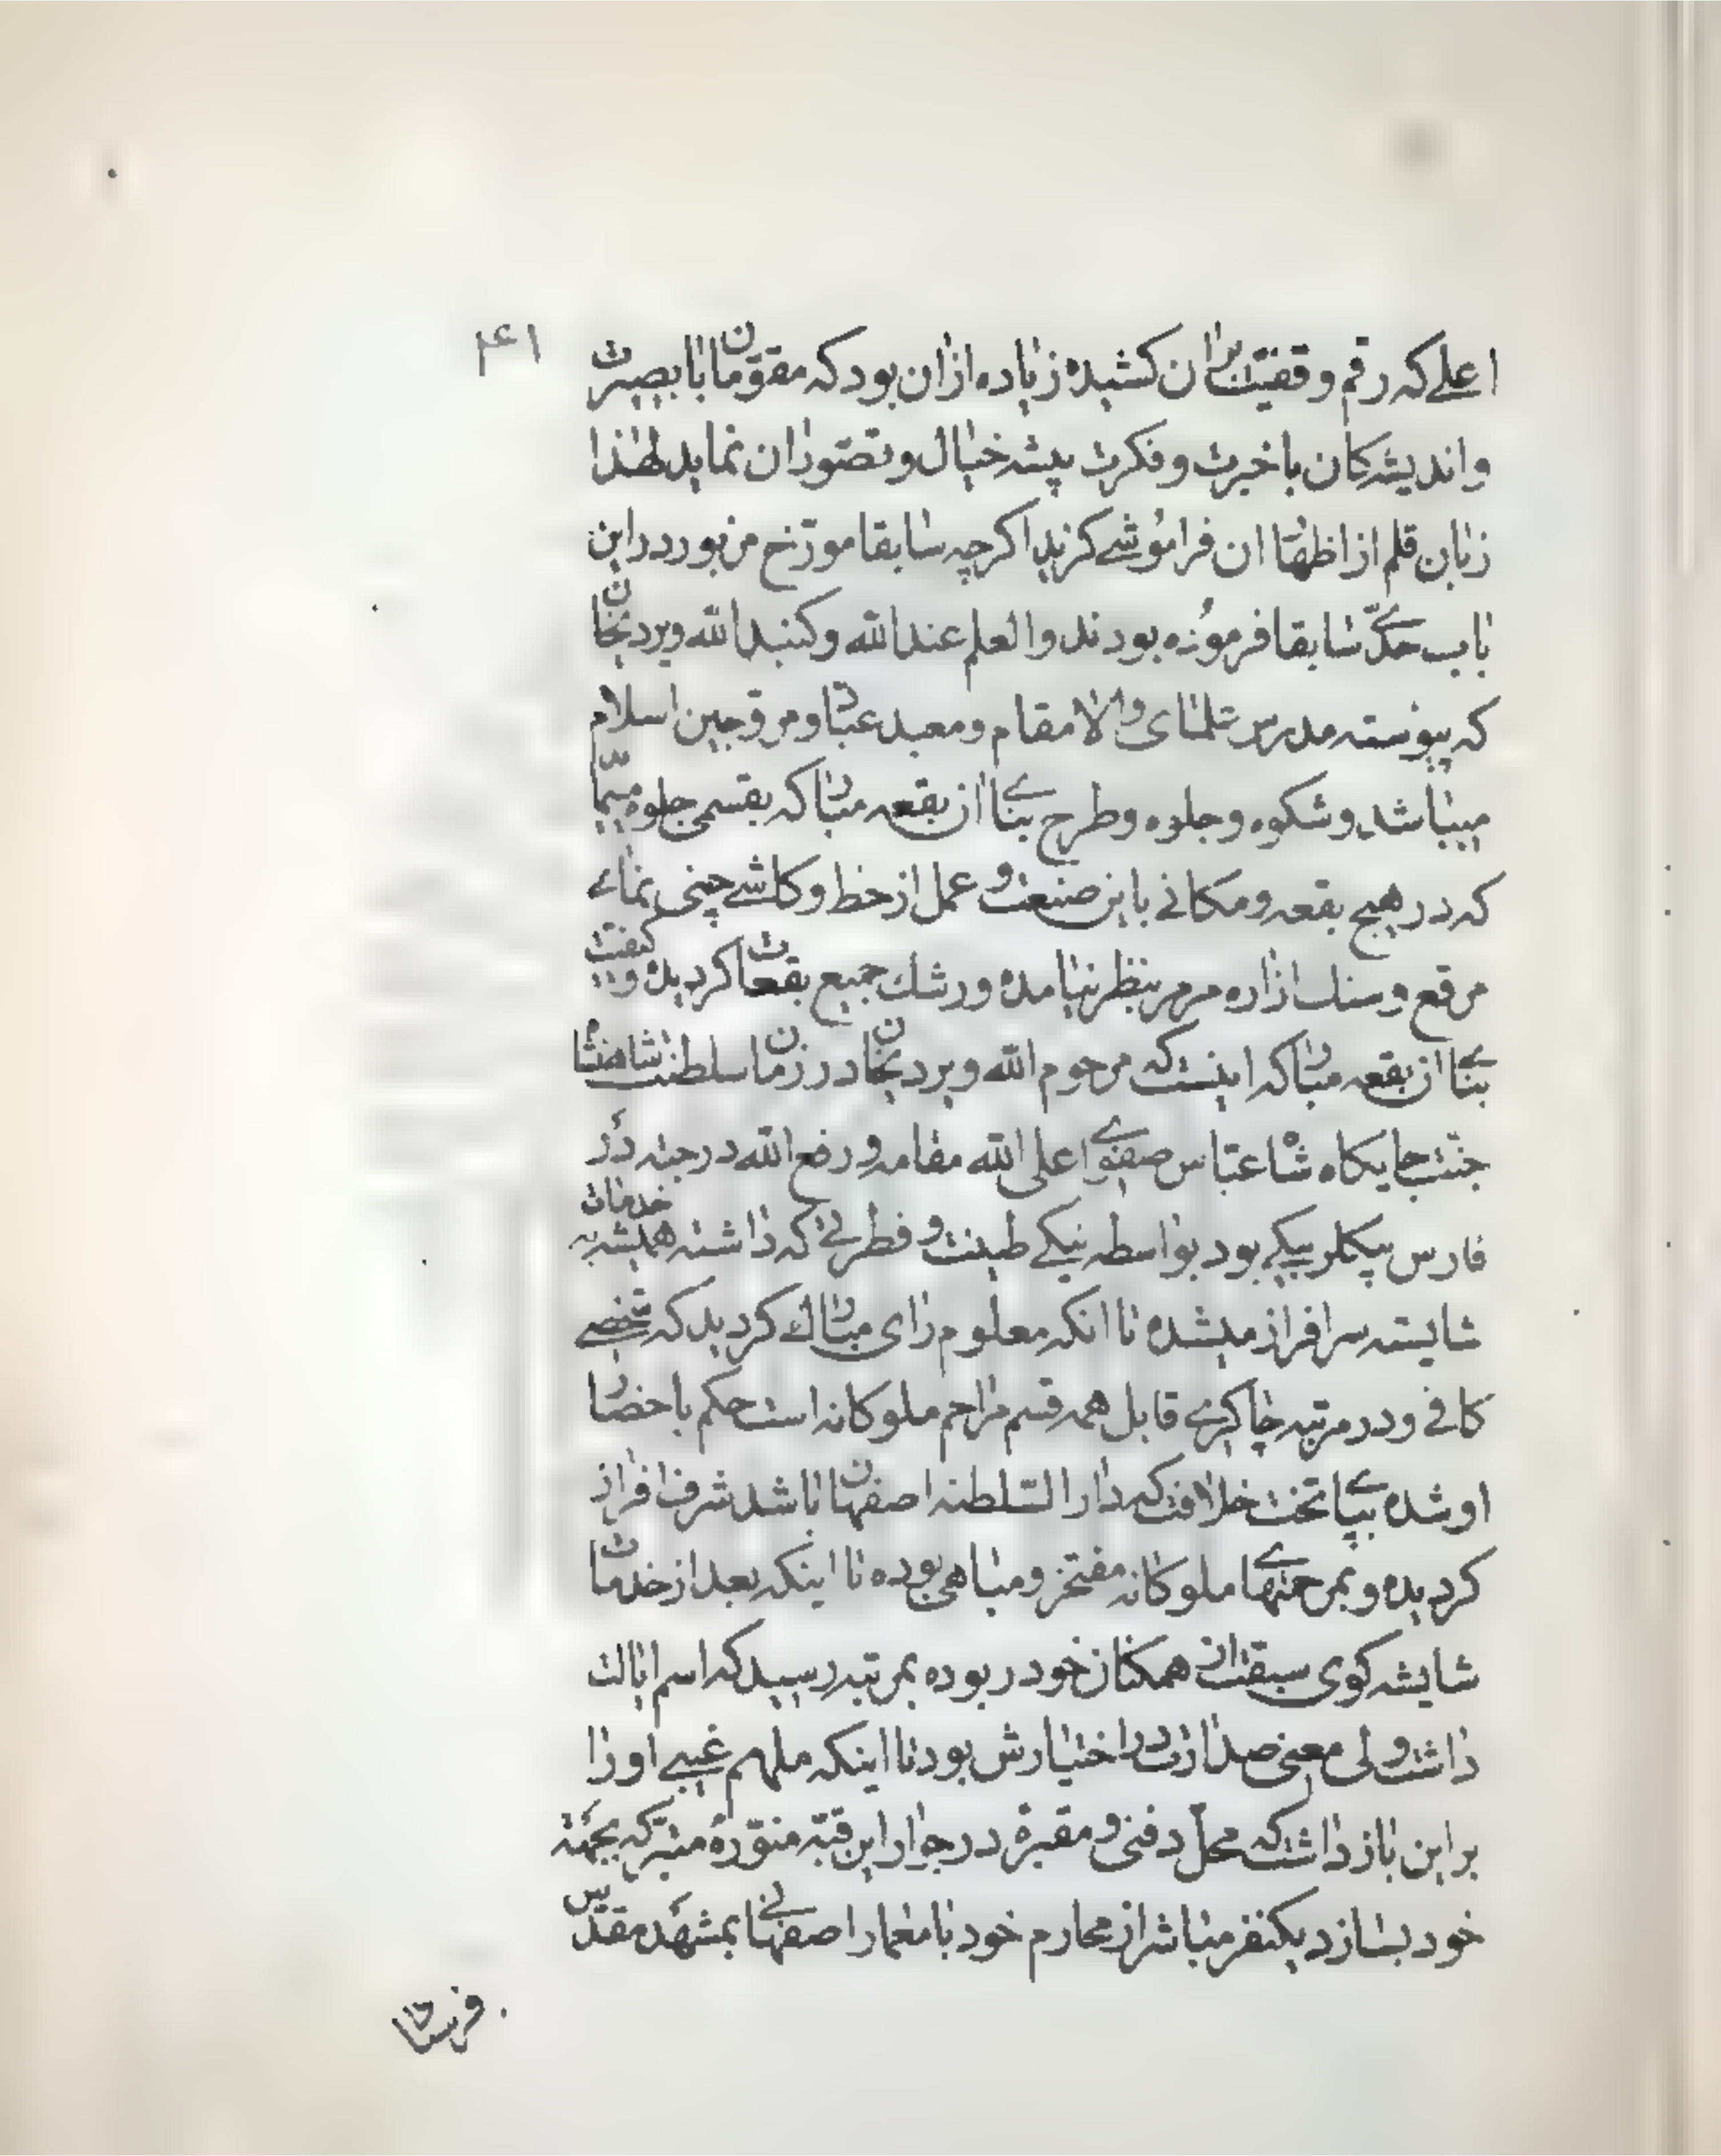 ۴۱
اعلے که رقم وقفیت بران کشیده زیاده ازان بود که مقومان با بصیرت
واندیشه کان با خبرت و فکرت پیشه خیال و تصور ان نماید لهذا
زبان قلم از اظهار ان فراموشے کزید اکرچه سابقا مورخ مزبور در این
باب حکے سابقا فرموده بودند والعلم عند الله وکنبد الله ویردیخان
که پیوسته مدرس علمای والا مقام ومعبد عباد ومروجین اسلام
میباشد وشکوه وجلوه وطرح بناے ان بقعه مبارکه بقسمی جلوه
که در هیچ بقعه ومکانے باین صنعت و عمل از خط وکاشے چینی نمائے
مرقع وسنك ازاره مرمر بنظر نیامده ورشك جمیع بقعات کردیده وکیفیت
بناے ان بقعه مبارکه اینست که مرحوم الله ویردیخان در زمان سلطنت شاهنشاه
جنت جایکاه شاه عباس صفوے اعلی الله مقامه ورفع الله درجته در
فارس بیکلربیکے بود بواسطه نیکے طینت و فطرتے که داشته همیشه به خدمات
شایسته سرافراز میشده تا انکه معلوم رای مبارك کردید که شخصے
کافے ودر مرتبه چاکرے قابل همه قسم مراحم ملوکانه است حکم باحضار
او شده بپاے تخت خلافت که دار السلطنه اصفهان باشد شرف افراز
کردیده وبمرحمتهاے ملوکانه مفتخر ومباهی بوده تا اینکه بعد از خدمات
شایسته کوی سبقت از همکنان خود ربوده بمرتبه رسید که اسم ایالت
داشت ولی معنی صدارت در اختیارش بود تا اینکه ملهم غیبے او را
بر این باز داشت که محل دفنی و مقبرهٔ در جوار این قبه منورهٔ متبرکه بجهته
خود بسازد یکنفر مباشر از محارم خود با معمار اصفهانے بمشهد مقدس
فرستاد